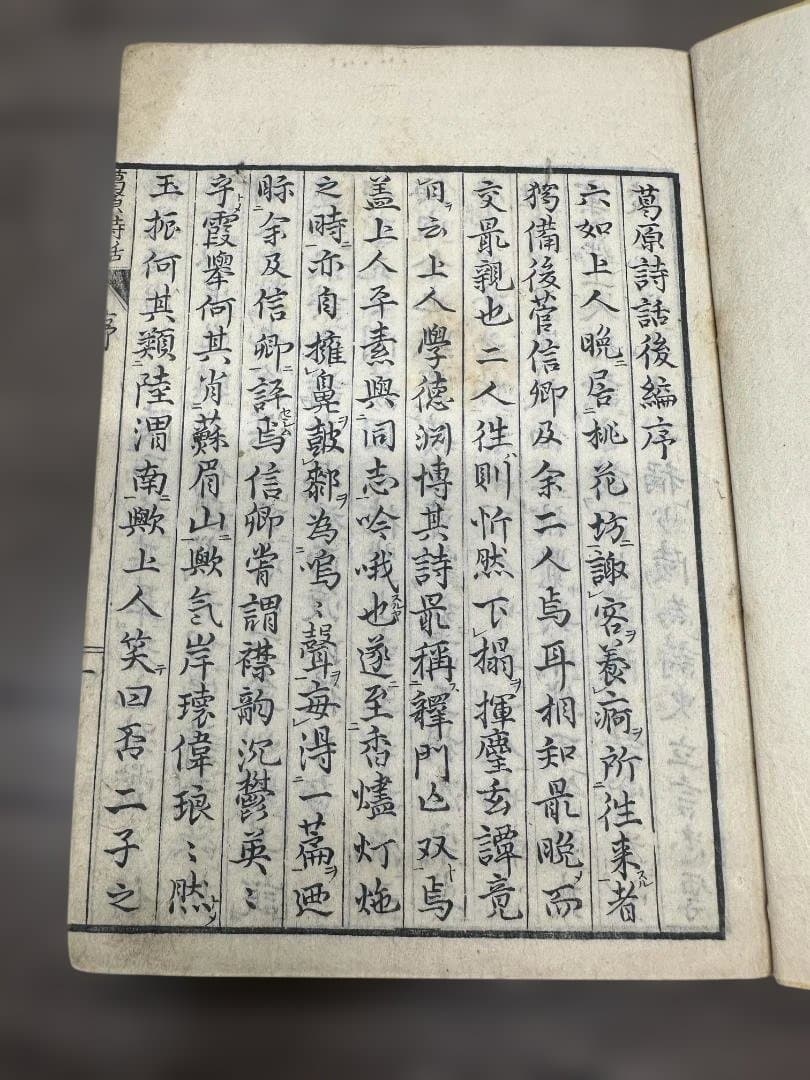 葛原詩話後編序
六如上人晩居桃花坊諏客養痾所往来者
獨備後菅信卿及余二人焉耳相知最晩而
交最親也二人往則忻然下榻揮麈玄譚竟
日云上人學德淵博其詩最稱釋門亡双焉
盖上人平素與同志吟哦也遂至香燼灯灺
之時亦自擁鼻皷鄰為嗚〻聲每得一篇迺
眎余及信卿評焉信卿甞謂襟韵沉鬱英〻
乎霞舉何其肖蘇眉山歟氣岸瓌偉琅〻然
玉振何其類陸渭南歟上人笑曰否二子之
葛原詩話
序
一